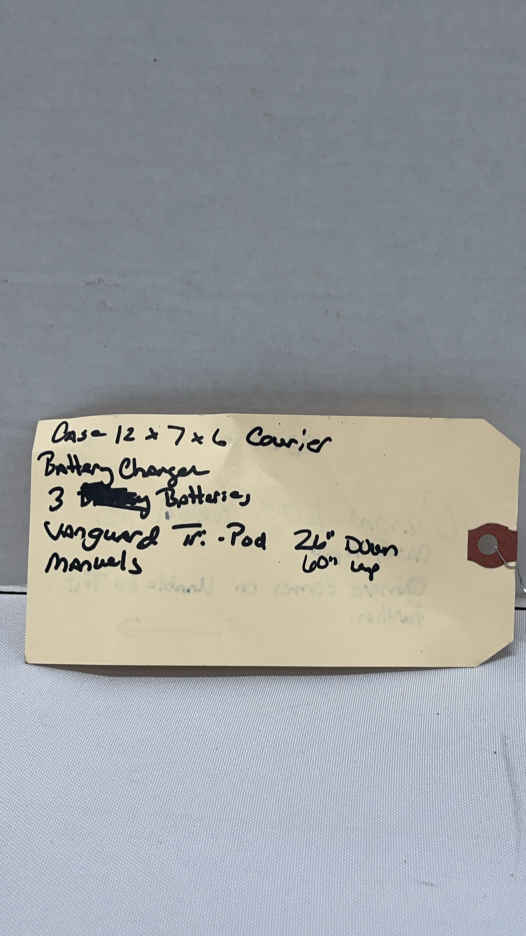 Case 12 x 7 x 6 Courier
Battery Charger
3 Batteries
Vanguard Tri-Pod 26" Down
60" up
Manuals